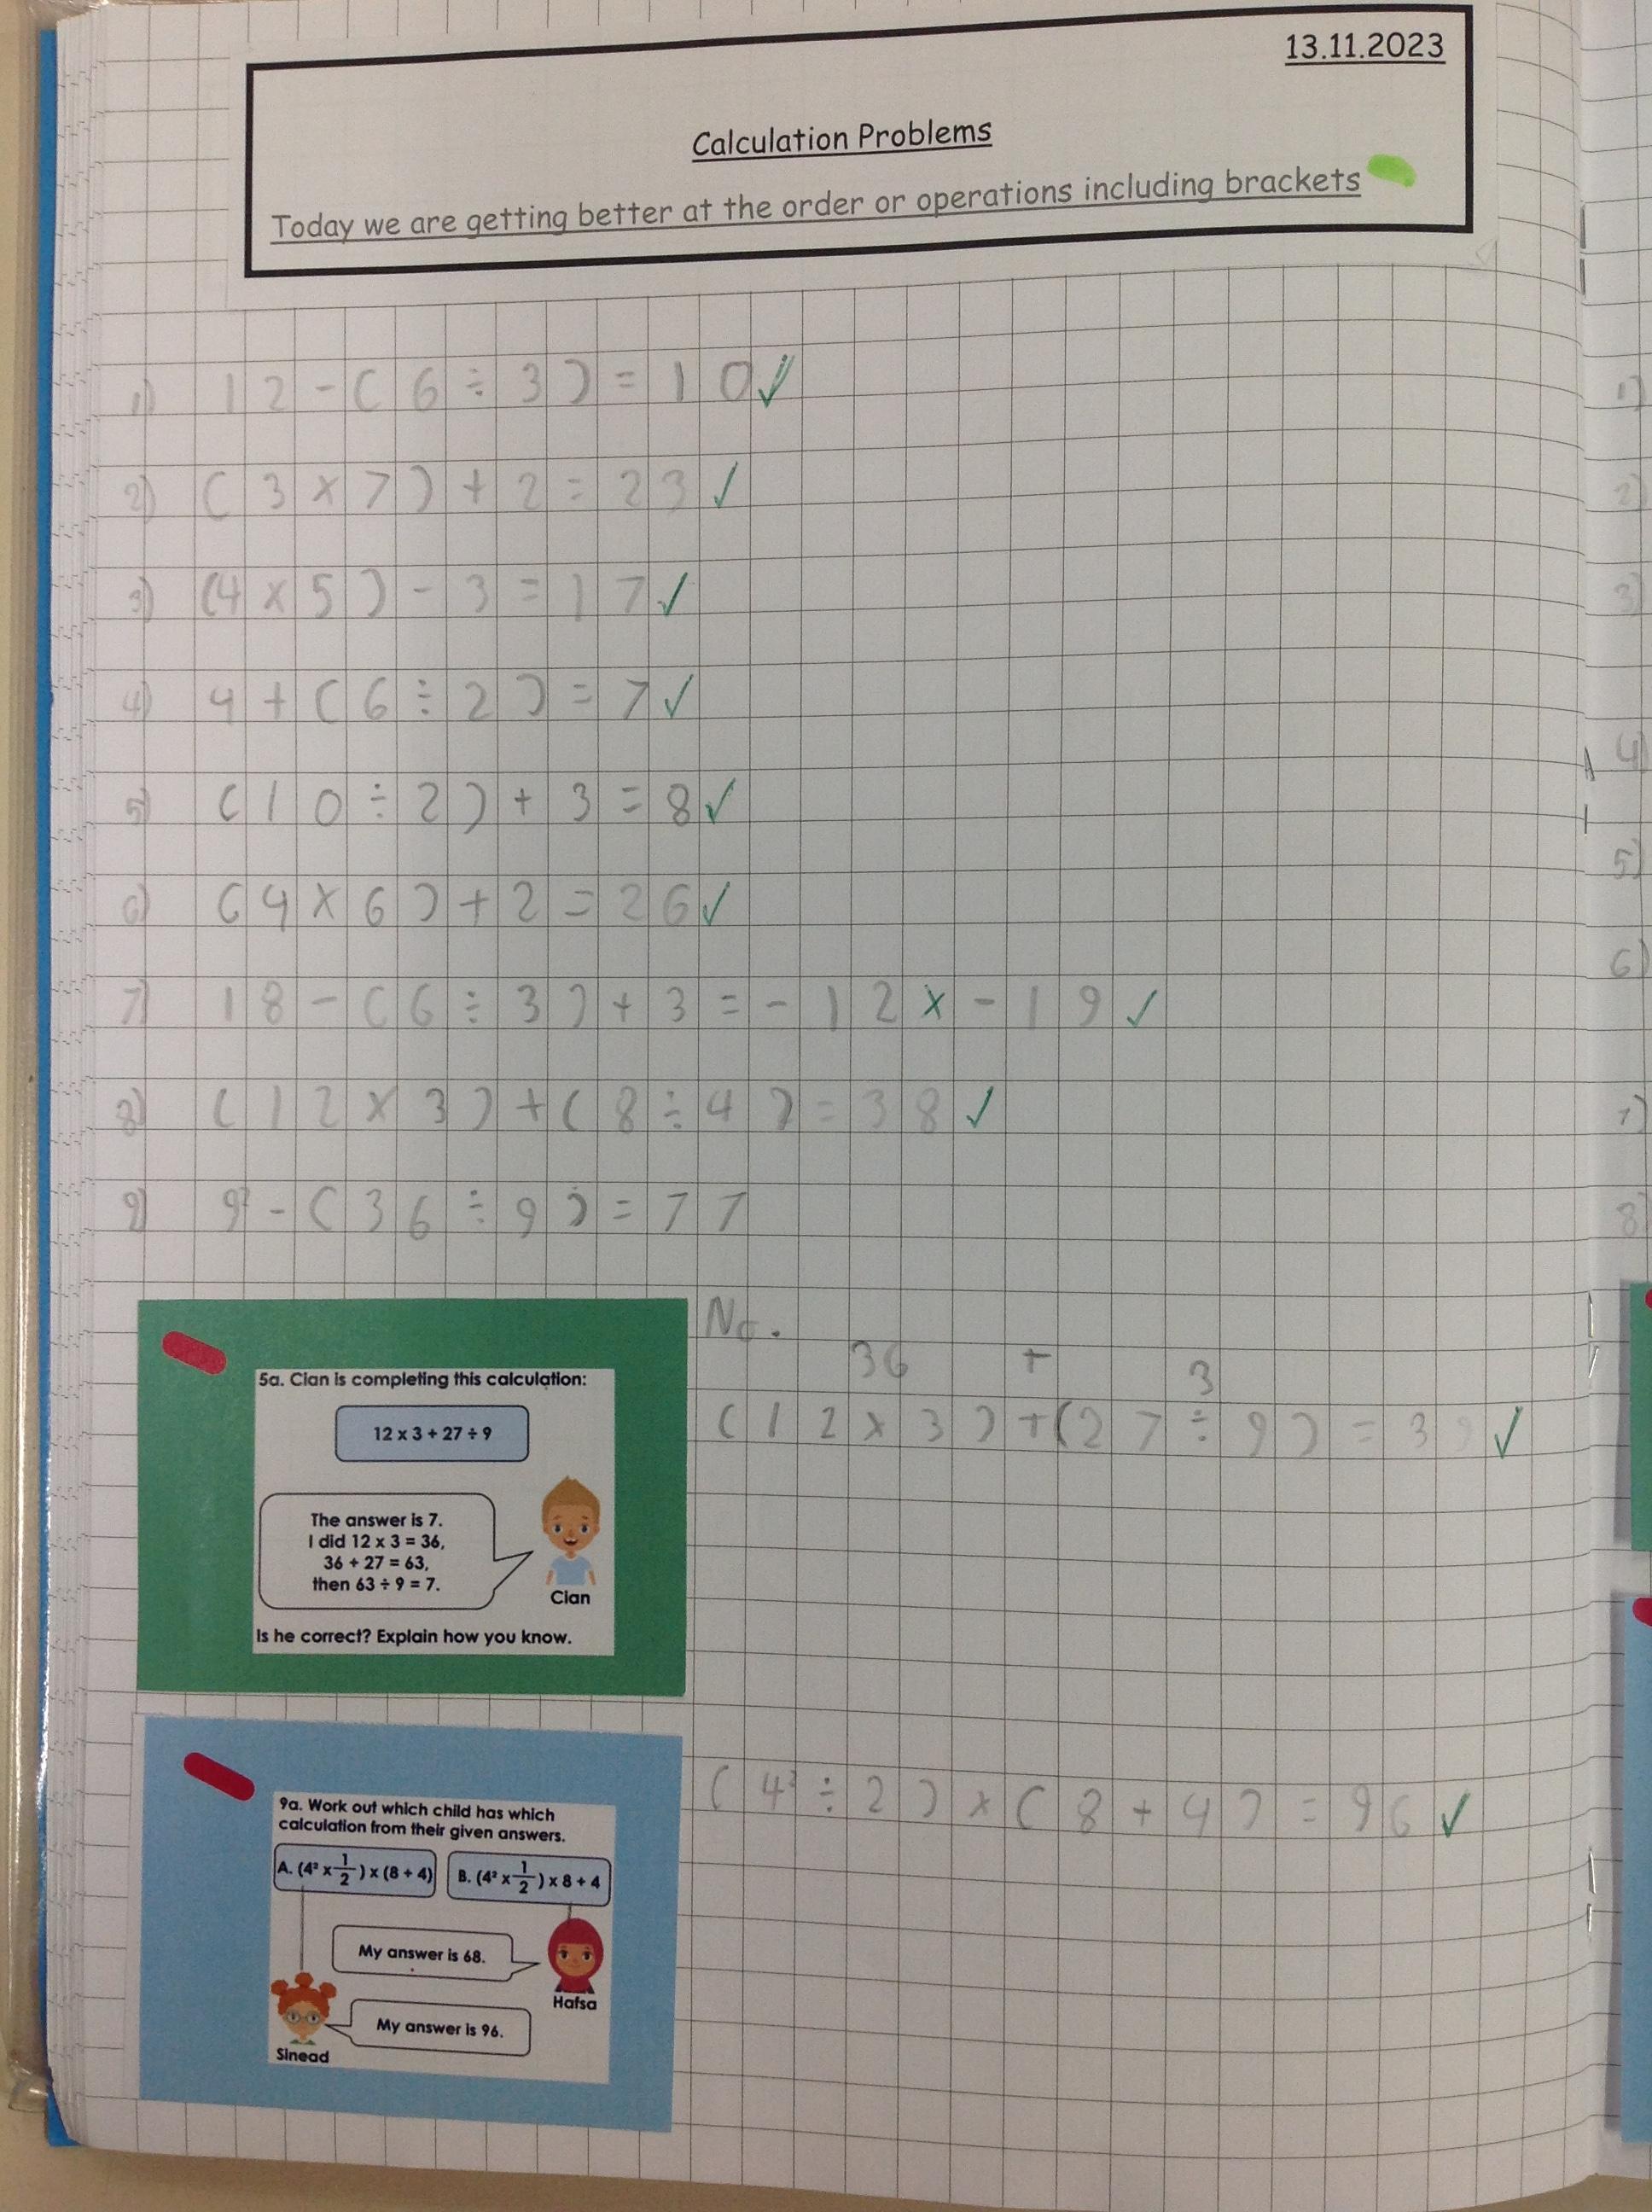 13.11.2023
Calculation Problems
Today we are getting better at the order or operations including brackets
1) 12 - (6 ÷ 3) = 10 ✓
2) (3 x 7) + 2 = 23 ✓
3) (4 x 5) - 3 = 17 ✓
4) 4 + (6 ÷ 2) = 7 ✓
5) (10 ÷ 2) + 3 = 8 ✓
6) (4 x 6) + 2 = 26 ✓
7) 18 - (6 ÷ 3) + 3 = - 12 x - 19 ✓
8) (12 x 3) + (8 ÷ 4) = 38 ✓
9) 9² - (36 ÷ 9) = 77
5a. Cian is completing this calculation:
12 x 3 + 27 ÷ 9
The answer is 7.
I did 12 x 3 = 36,
36 + 27 = 63,
then 63 ÷ 9 = 7.
Cian
Is he correct? Explain how you know.
No.
36 + 3
(12 x 3) + (27 ÷ 9) = 39 ✓
9a. Work out which child has which
calculation from their given answers.
A. (4² x 1/2) x (8 + 4) B. (4² x 1/2) x 8 + 4
My answer is 68.
Hafsa
My answer is 96.
Sinead
(4² ÷ 2) x (8 + 4) = 96 ✓
1)
2)
3)
4)
5)
6)
7)
8